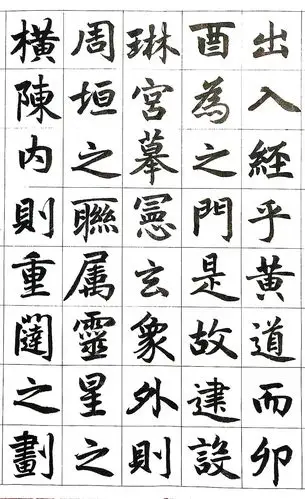 出入經乎黃道而卯
酉為之門是故建設
琳宮摹憲玄象外則
周垣之聯属靈星之
橫陳内則重闥之劃